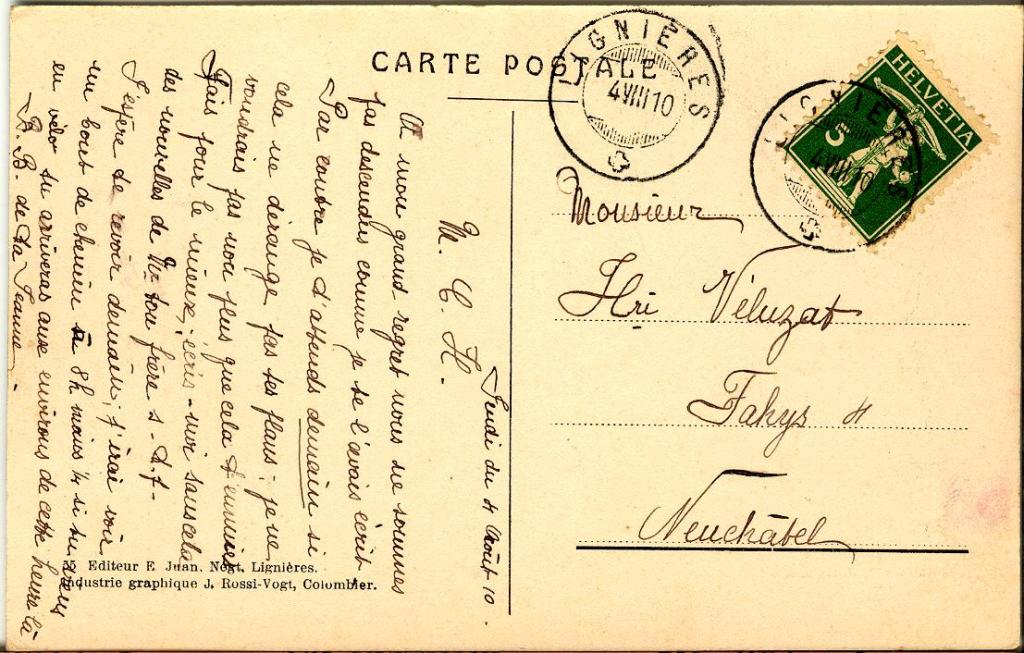 CARTE POSTALE
LIGNIÈRES
4 VIII 10
HELVETIA
5
LIGNIÈRES
4 VIII 10
Monsieur
Hri Véluzat
Fahys 4
Neuchâtel
Jeudi du 4 Août 10.
M. C. H.
A mon grand regret nous ne sommes
pas descendues comme je te l'avais écrit
Par contre je t'attends demain si
cela ne dérange pas tes plans; je ne
voudrais pas non plus que cela t'ennuie
Fais pour le mieux; écris-moi sans cela
des nouvelles de Mr ton frère s.t.p.
J'espère te revoir demain; j'irai voir
un bout de chemin à 8h moins ¼ si tu viens
en vélo tu arriveras aux environs de cette heure là
B. B. de ta Jeanne.
55 Editeur E. Juan. Négt. Lignières.
Industrie graphique J. Rossi-Vogt, Colombier.